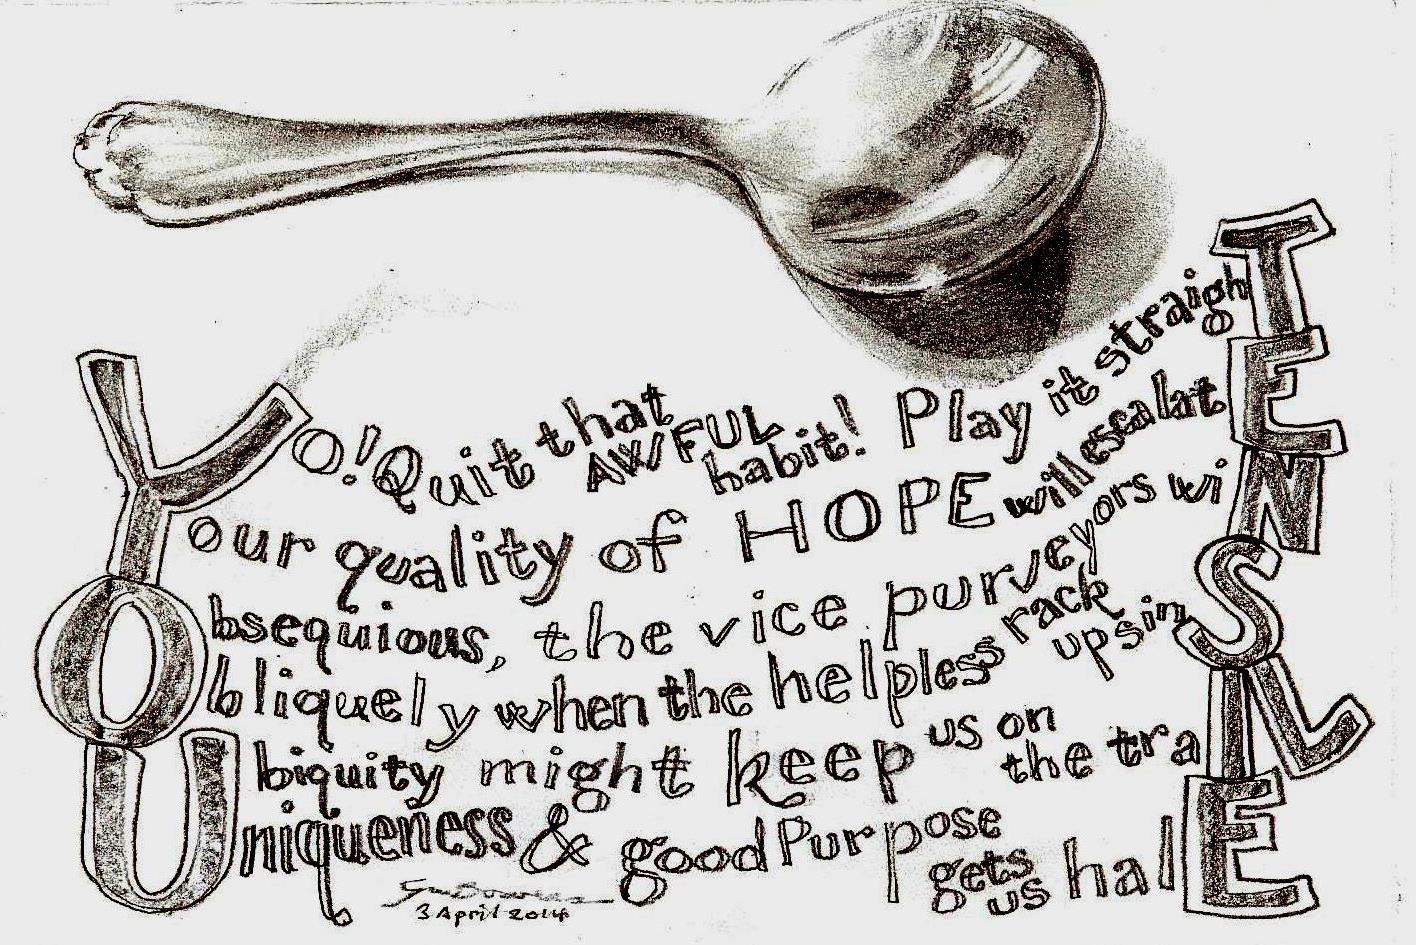 YO! Quit that AWFUL habit! Play it straighT
Your quality of HOPE will escalatE
Obsequious, the vice purveyors wiN
Obliquely when the helpless rack up sinS
Ubiquity might keep us on the traIL
Uniqueness & good Purpose gets us halE
3 April 2014